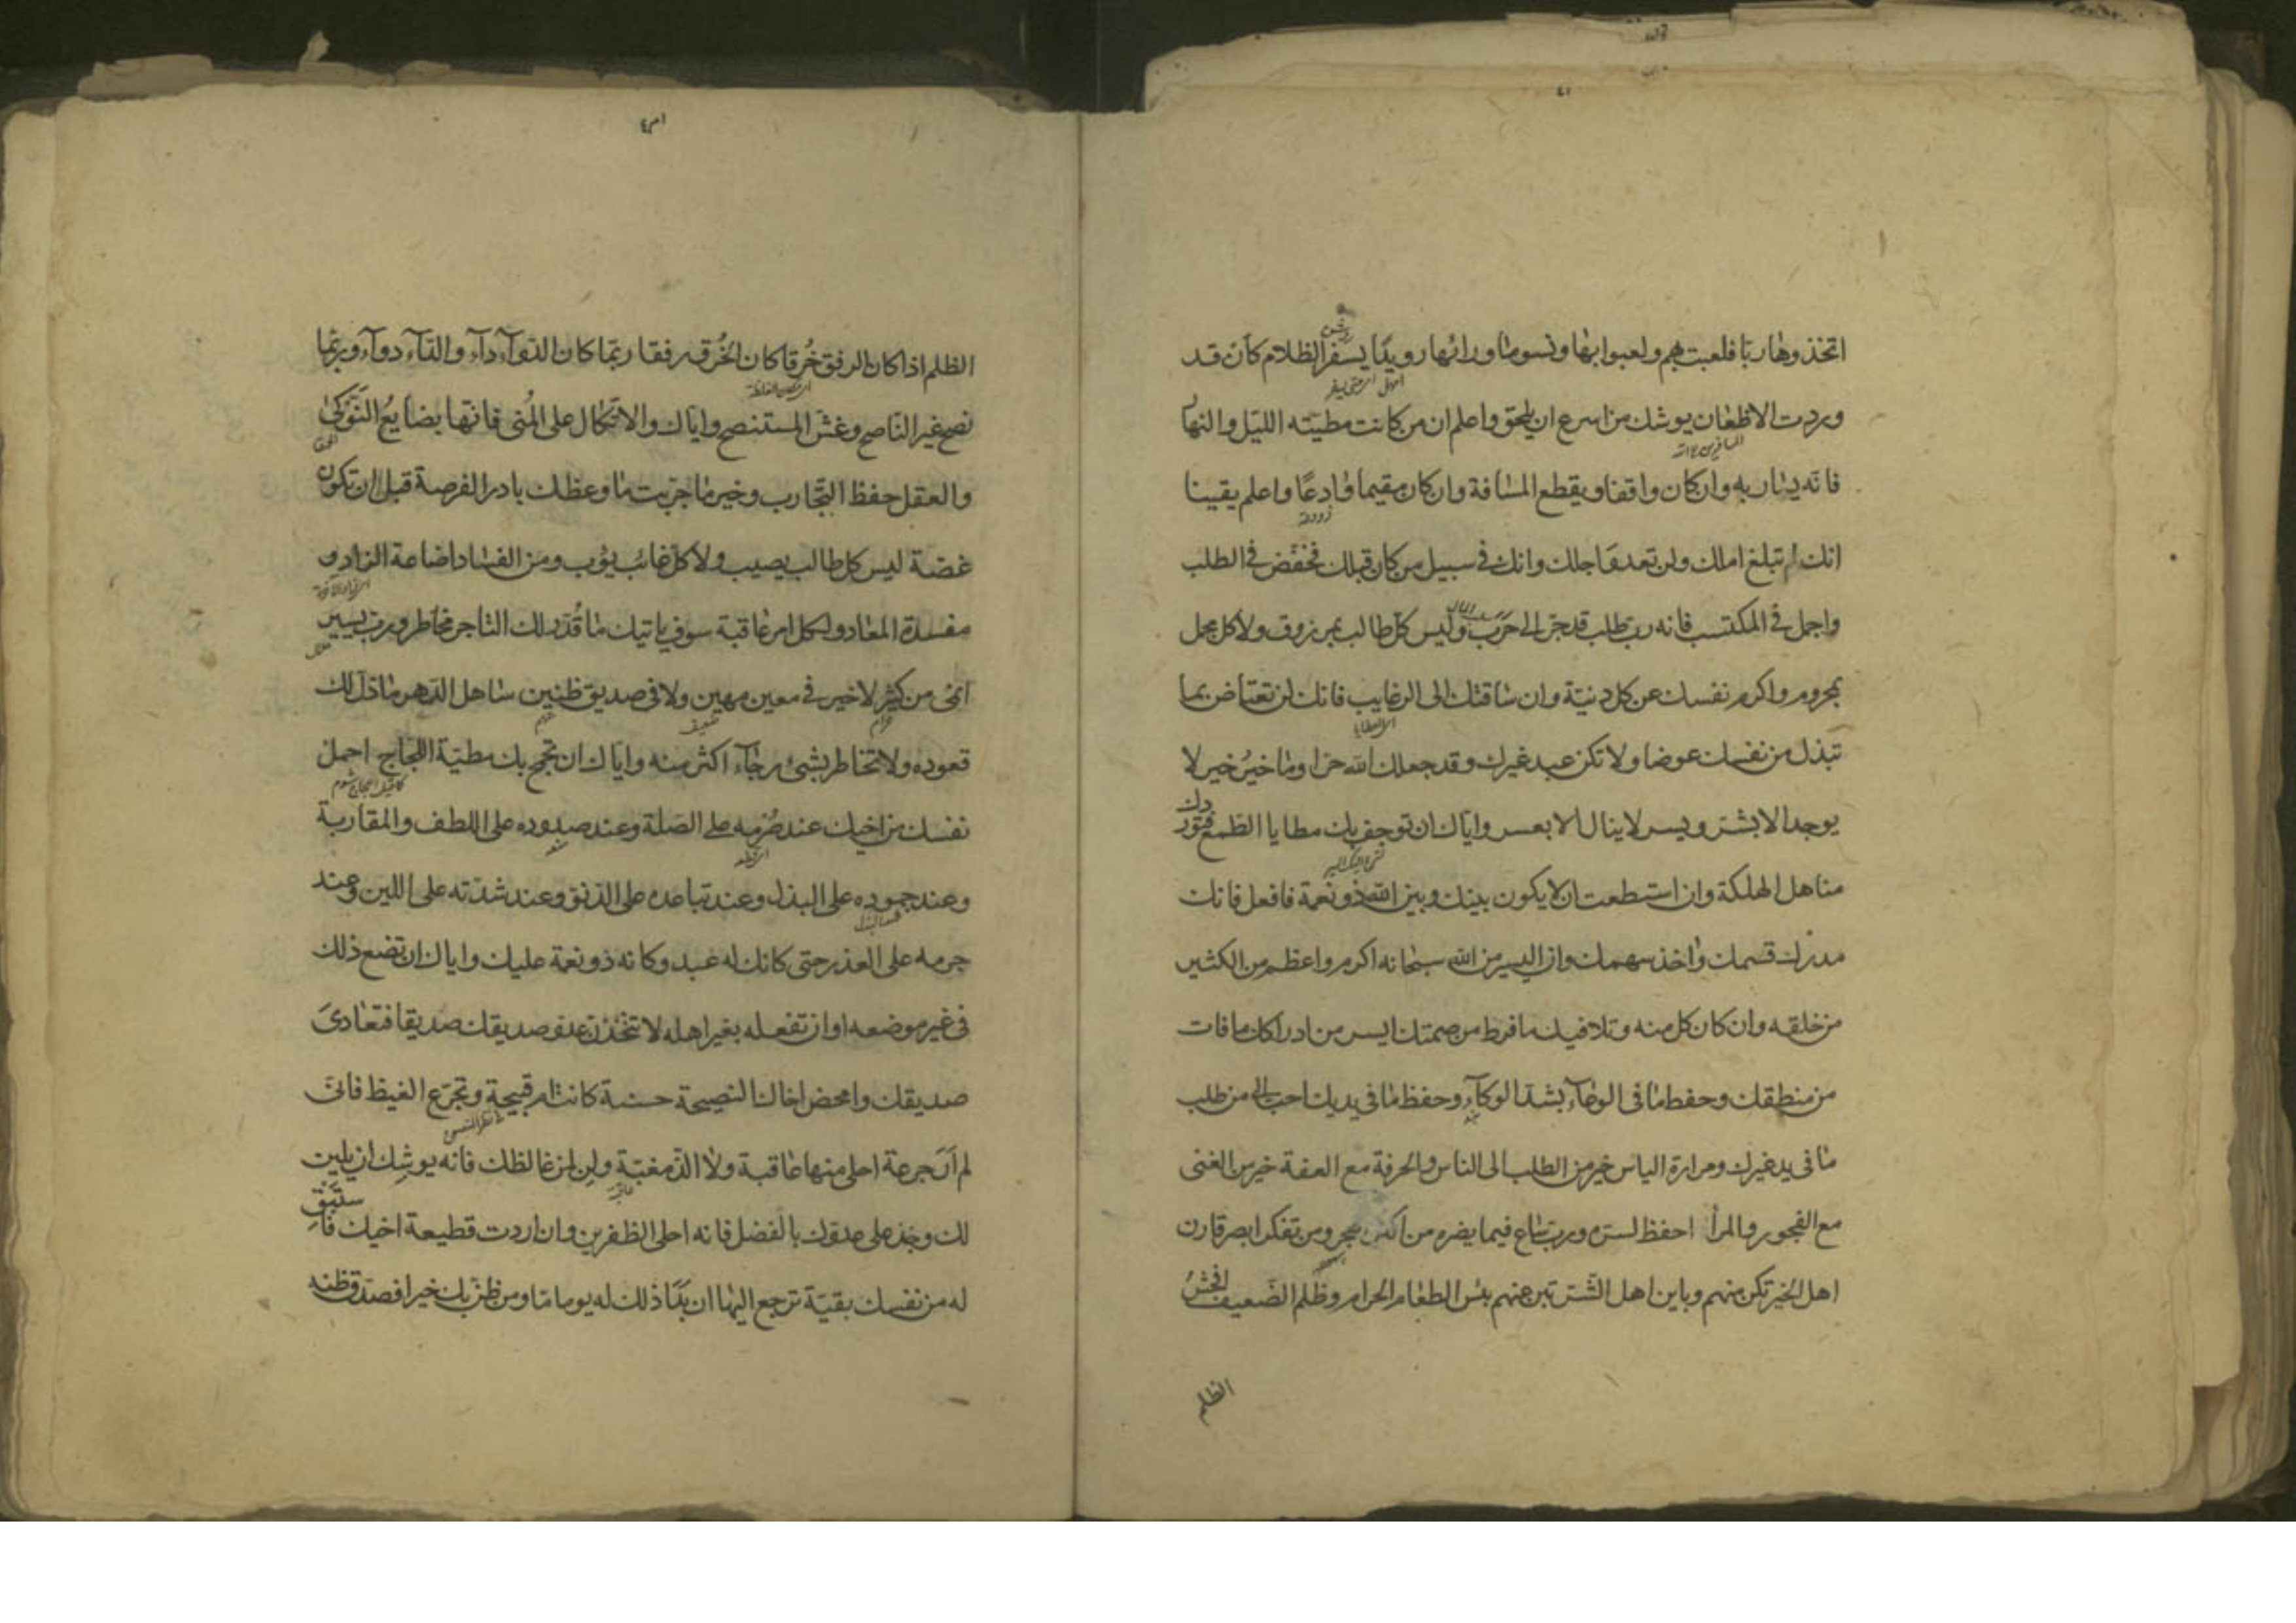 اتخذوها ربّا فلعبت بهم ولعبوا بها ونسوا ما ورائها رويدًا يسفر الظلام كأن قد
وردت الاظعان يوشك من اسرع ان يلحق واعلم ان من كانت مطيته الليل والنهار
فانه يسار به وان كان واقفا ويقطع المسافة وان كان مقيما وادعًا واعلم يقينا
انك لم تبلغ املك ولن تعدو اجلك وانك في سبيل من كان قبلك فخفّض في الطلب
واجمل في المكتسب فانه رب طلب قد جر الى حرب وليس كل طالب بمرزوق ولا كل مجمل
بمحروم واكرم نفسك عن كل دنيّة وان ساقتك الى الرغايب فانك لن تعتاض بما
تبذل من نفسك عوضا ولا تكن عبد غيرك وقد جعلك الله حرا وما خير خير لا
يوجد الا بشر ويسر لا ينال الا بعسر واياك ان توجف بك مطايا الطمع فتوردك
مناهل الهلكة وان استطعت ان لا يكون بينك وبين الله ذو نعمة فافعل فانك
مدرك قسمك واخذ سهمك وان اليسير من الله سبحانه اكرم واعظم من الكثير
من خلقه وان كان كل منه وتلافيك ما فرط من صمتك ايسر من ادراكك ما فات
من منطقك وحفظ ما في الوعاء بشد الوكاء وحفظ ما في يديك احب الي من طلب
ما في يد غيرك ومرارة الياس خير من الطلب الى الناس والحرفة مع العفة خير من الغنى
مع الفجور والمرأ احفظ لسره ورب ساع فيما يضره من اكثر هجر ومن تفكر ابصر قارن
اهل الخير تكن منهم وباين اهل الشر تبن عنهم بئس الطعام الحرام وظلم الضعيف افحش
الظلم
الظلم اذا كان الرفق خُرقا كان الخُرق رفقا ربّما كان الدوآء دآء والدآء دوآء وربّما
نصح غير الناصح وغشّ المستنصح واياك والاتكال على المُنى فانها بضايعُ النَوكى
والعقل حفظ التجارب وخير ما جربت ما وعظك بادر الفرصة قبل ان تكون
غصّة ليس كل طالب يصيب ولا كل غائب يؤب ومن الفساد اضاعة الزاد و
مفسدة المعاد ولكل امر عاقبة سوف ياتيك ما قُدّر لك التاجر مخاطر ورب يسير
انمى من كثير لا خير في معين مهين ولا في صديق ظنين ساهل الدهر ما ذلّ لك
قعوده ولا تخاطر بشئ رجآء اكثر منه واياك ان تجمح بك مطيّة اللجاج احمل
نفسك من اخيك عند صُرمه على الصّلة وعند صدوده على اللطف والمقاربة
وعند جموده على البذل وعند تباعده على الدنو وعند شدّته على اللين وعند
جرمه على العذر حتى كانك له عبد وكانه ذو نعمة عليك واياك ان تضع ذلك
في غير موضعه او ان تفعله بغير اهله لا تتخذن عدو صديقك صديقا فتعادى
صديقك وامحض اخاك النصيحة حسنة كانت ام قبيحة وتجرّع الغيظ فانى
لم أرَ جرعة احلى منها عاقبة ولا الذّ مغبّة ولِن لمن غالظك فانه يوشِك ان يلين
لك وخذ على عدوك بالفضل فانه احلى الظفرين وان اردت قطيعة اخيك فاستبق
له من نفسك بقيّة ترجع اليها ان بدَا ذلك له يوما مّا ومن ظنّ بك خيرا فصدّق ظنه